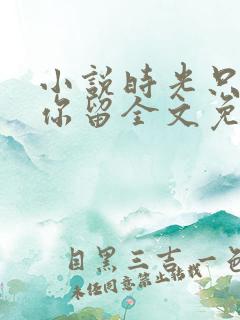 小说时光只
你留全文免
目黑三吉一色
未经同意禁止转载